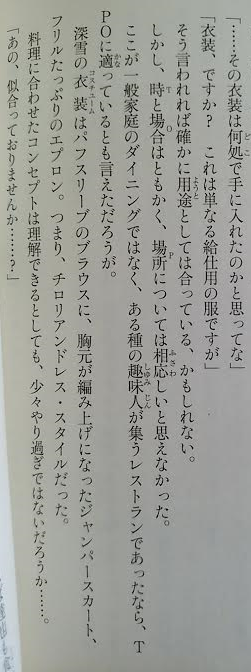 「……その衣装は何処で手に入れたのかと思ってな」
「衣装、ですか？　これは単なる給仕用の服ですが」
そう言われれば確かに用途としては合っている、かもしれない。
しかし、時と場合はともかく、場所については相応しいと思えなかった。
ここが一般家庭のダイニングではなく、ある種の趣味人が集うレストランであったなら、T
POに適っているとも言えただろうが。
深雪の衣装はパフスリーブのブラウスに、胸元が編み上げになったジャンパースカート、
フリルたっぷりのエプロン。つまり、チロリアンドレス・スタイルだった。
料理に合わせたコンセプトは理解できるとしても、少々やり過ぎではないだろうか……。
「あの、似合っておりませんか……？」